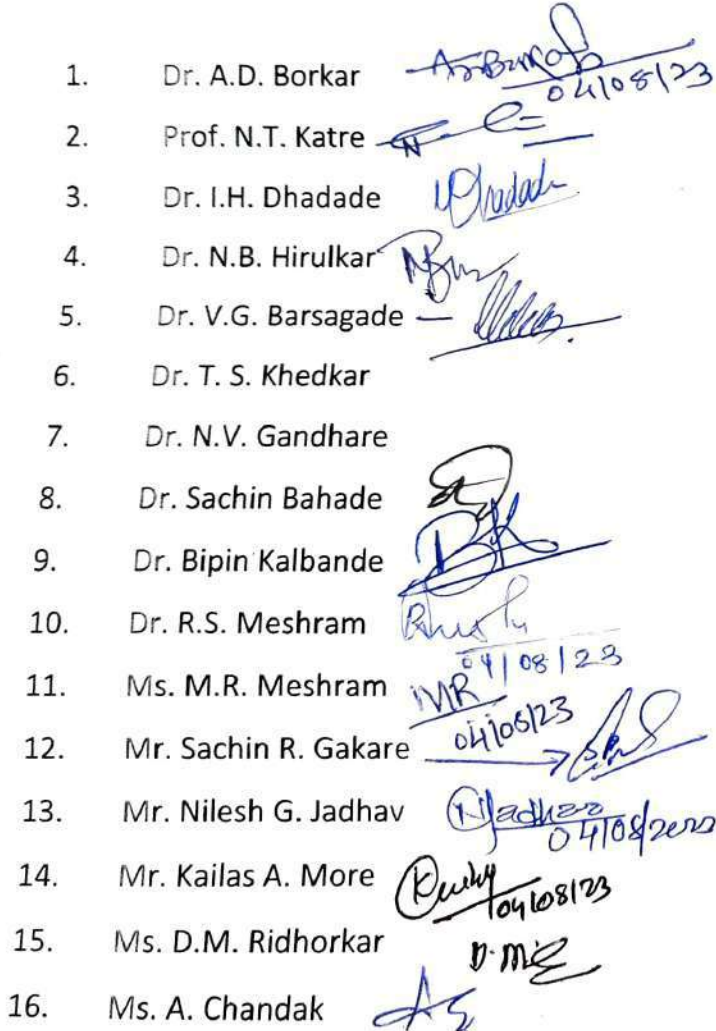 1. Dr. A.D. Borkar
04/08/23
2. Prof. N.T. Katre
3. Dr. I.H. Dhadade
4. Dr. N.B. Hirulkar
5. Dr. V.G. Barsagade
6. Dr. T. S. Khedkar
7. Dr. N.V. Gandhare
8. Dr. Sachin Bahade
9. Dr. Bipin Kalbande BK
10. Dr. R.S. Meshram
04/08/23
11. Ms. M.R. Meshram MR
04/08/23
12. Mr. Sachin R. Gakare
13. Mr. Nilesh G. Jadhav NJadhav
04/08/2023
14. Mr. Kailas A. More
04/08/23
15. Ms. D.M. Ridhorkar
16. Ms. A. Chandak